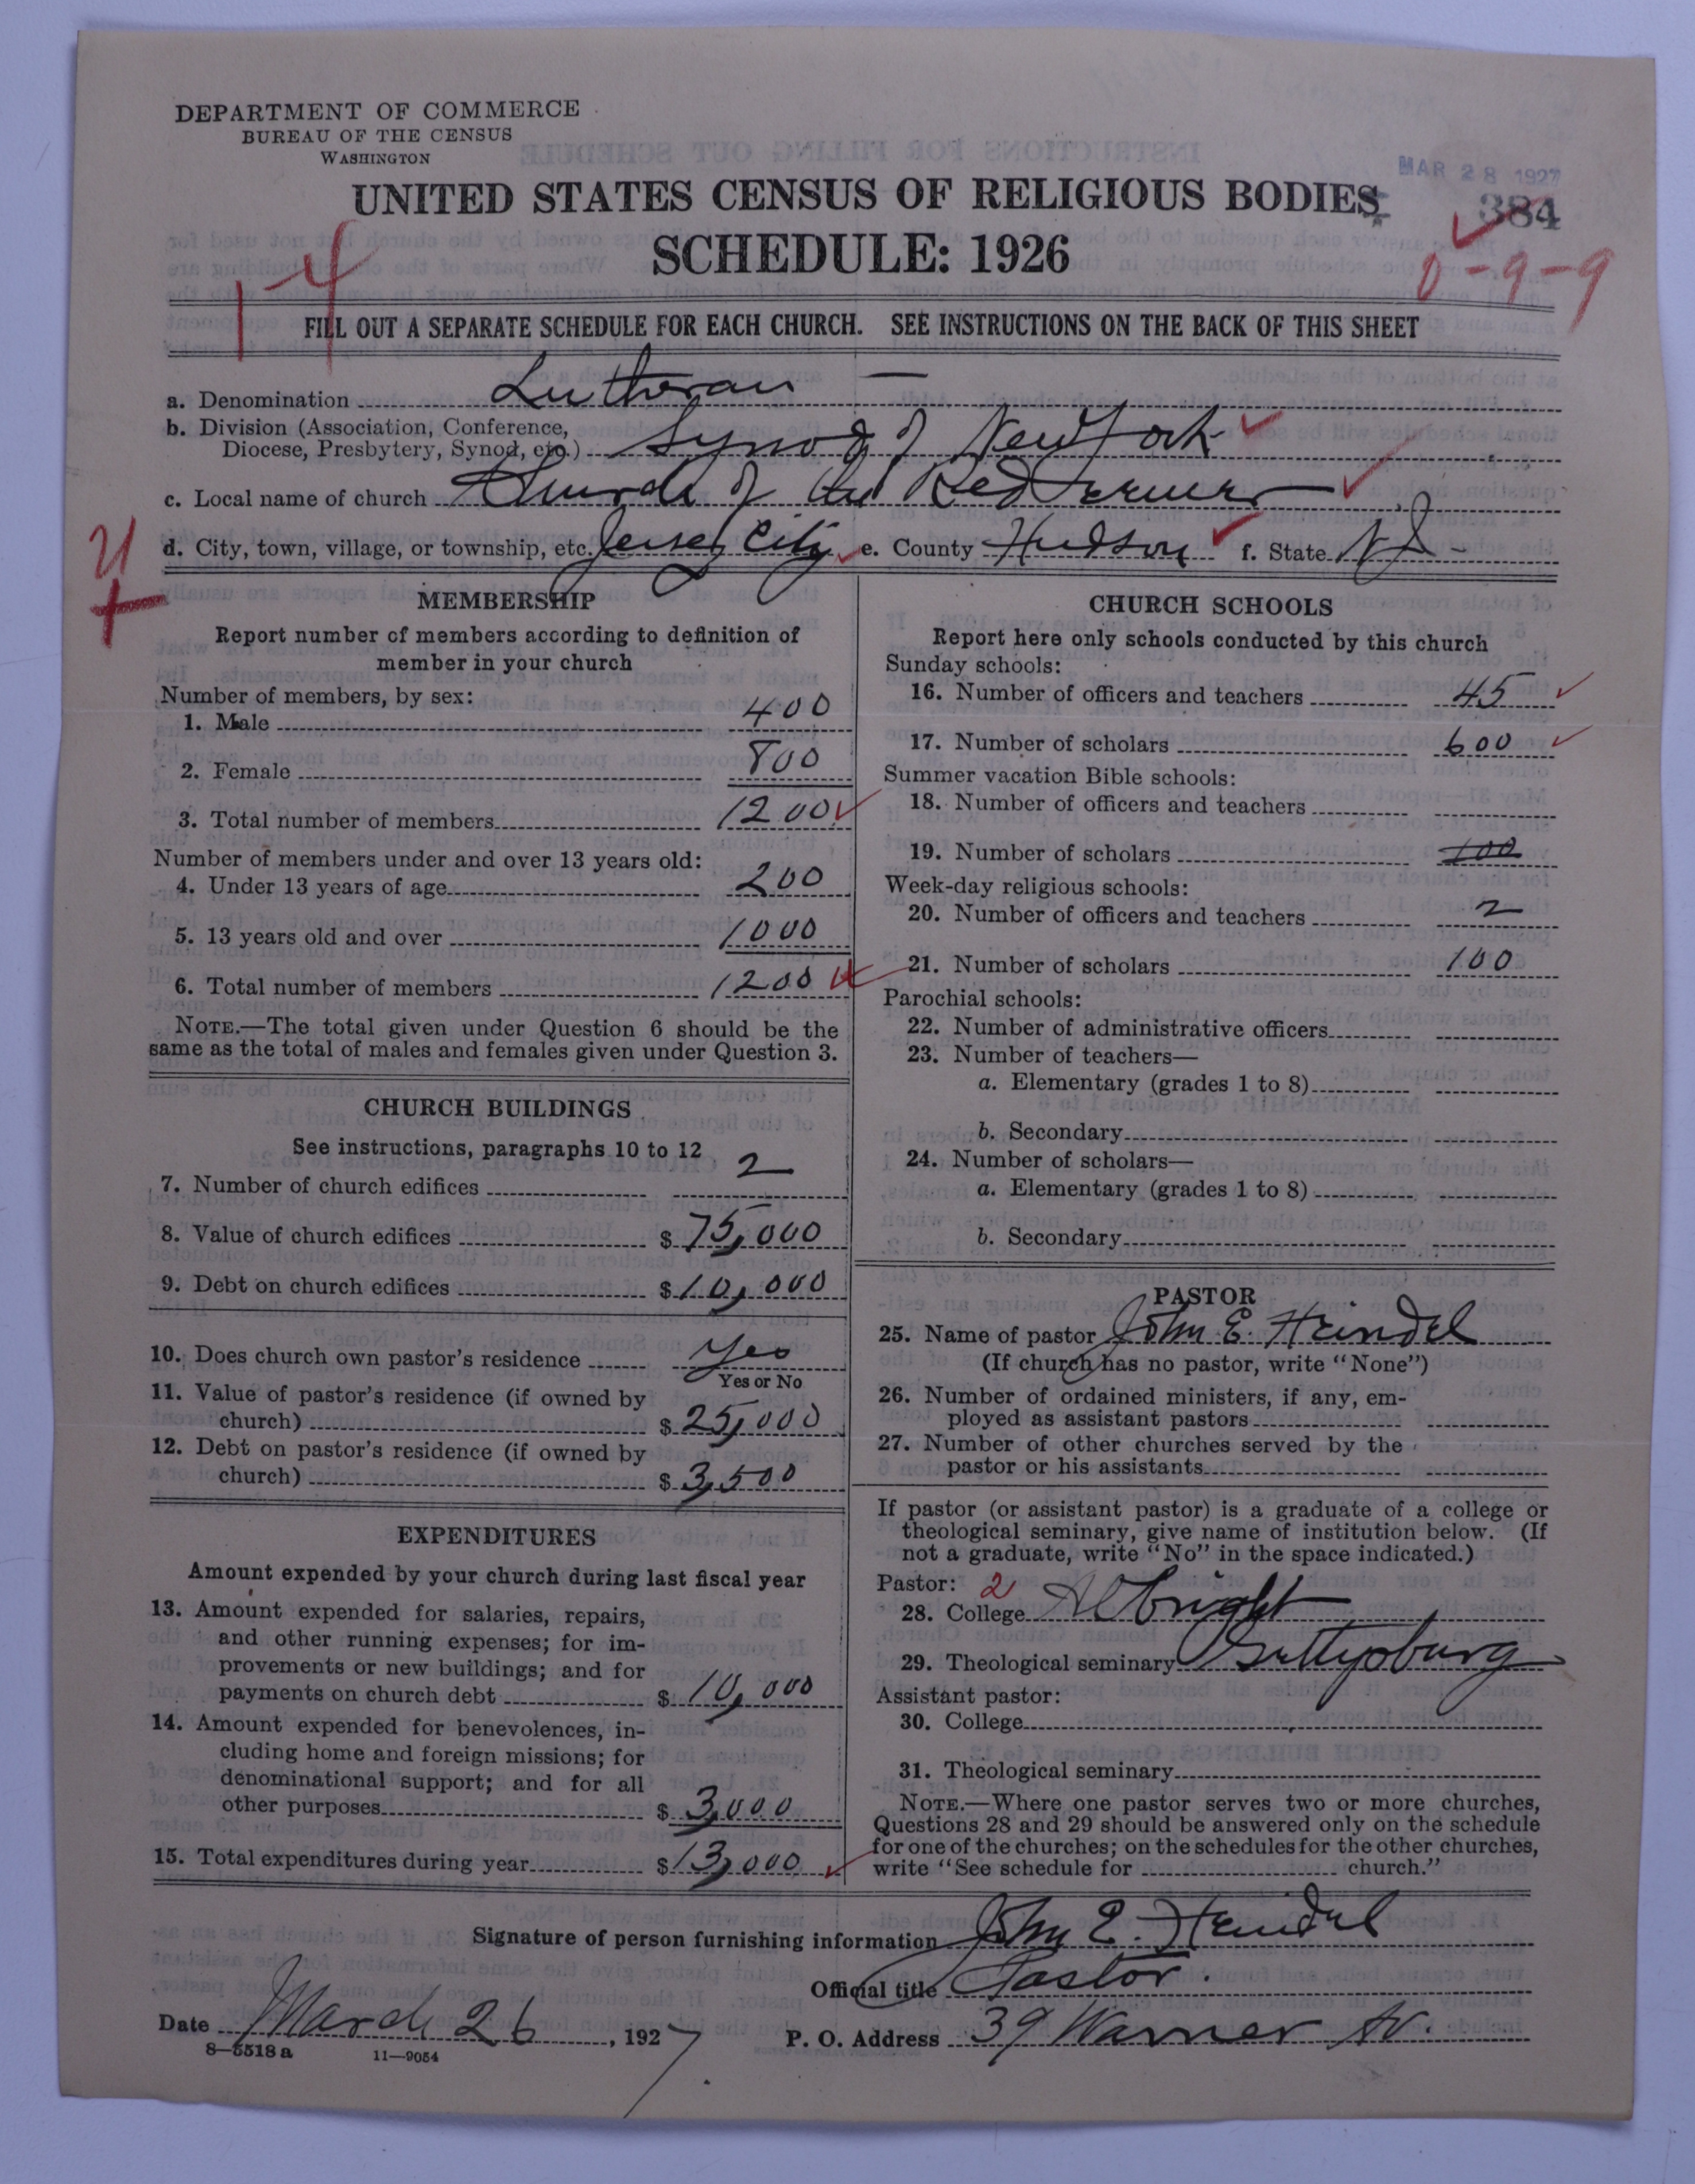 DEPARTMENT OF COMMERCE
BUREAU OF THE CENSUS
WASHINGTON
MAR 28 1927
UNITED STATES CENSUS OF RELIGIOUS BODIES
384
SCHEDULE: 1926
14
0-9-9
FILL OUT A SEPARATE SCHEDULE FOR EACH CHURCH. SEE INSTRUCTIONS ON THE BACK OF THIS SHEET
a. Denomination Lutheran —
b. Division (Association, Conference,
Diocese, Presbytery, Synod, etc.) Synod of New York
c. Local name of church Church of the Redeemer
d. City, town, village, or township, etc. Jersey City e. County Hudson f. State N J
MEMBERSHIP
Report number of members according to definition of
member in your church
Number of members, by sex:
1. Male 400
2. Female 800
3. Total number of members 1200
Number of members under and over 13 years old:
4. Under 13 years of age 200
5. 13 years old and over 1000
6. Total number of members 1200
NOTE.—The total given under Question 6 should be the
same as the total of males and females given under Question 3.
CHURCH BUILDINGS
See instructions, paragraphs 10 to 12
7. Number of church edifices 2
8. Value of church edifices $ 75,000
9. Debt on church edifices $ 10,000
10. Does church own pastor's residence Yes
Yes or No
11. Value of pastor's residence (if owned by
church) $ 25,000
12. Debt on pastor's residence (if owned by
church) $ 3,500
EXPENDITURES
Amount expended by your church during last fiscal year
13. Amount expended for salaries, repairs,
and other running expenses; for im-
provements or new buildings; and for
payments on church debt $ 10,000
14. Amount expended for benevolences, in-
cluding home and foreign missions; for
denominational support; and for all
other purposes $ 3,000
15. Total expenditures during year $ 13,000
CHURCH SCHOOLS
Report here only schools conducted by this church
Sunday schools:
16. Number of officers and teachers 45
17. Number of scholars 600
Summer vacation Bible schools:
18. Number of officers and teachers
19. Number of scholars 100
Week-day religious schools:
20. Number of officers and teachers 2
21. Number of scholars 100
Parochial schools:
22. Number of administrative officers
23. Number of teachers—
a. Elementary (grades 1 to 8)
b. Secondary
24. Number of scholars—
a. Elementary (grades 1 to 8)
b. Secondary
PASTOR
25. Name of pastor John E. Heindel
(If church has no pastor, write "None")
26. Number of ordained ministers, if any, em-
ployed as assistant pastors
27. Number of other churches served by the
pastor or his assistants
If pastor (or assistant pastor) is a graduate of a college or
theological seminary, give name of institution below. (If
not a graduate, write "No" in the space indicated.)
Pastor: 2
28. College Albright
29. Theological seminary Gettysburg
Assistant pastor:
30. College
31. Theological seminary
NOTE.—Where one pastor serves two or more churches,
Questions 28 and 29 should be answered only on the schedule
for one of the churches; on the schedules for the other churches,
write "See schedule for church."
Signature of person furnishing information John E. Heindel
Official title Pastor.
Date March 26, 1927
P. O. Address 39 Warner Av.
8—5518 a 11—9054